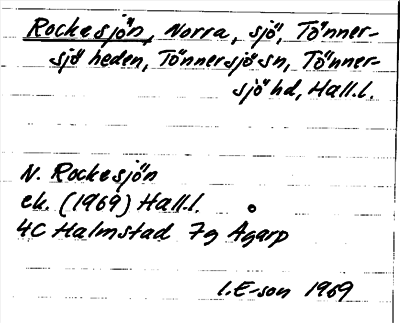 Rockesjön, Norra, sjö, Tönner-
sjö heden, Tönnersjö sn, Tönner-
sjö hd, Hall.l.
N. Rockesjön
ek. (1969) Hall.l.
4C Halmstad 7g Ågarp
I.E-son 1969